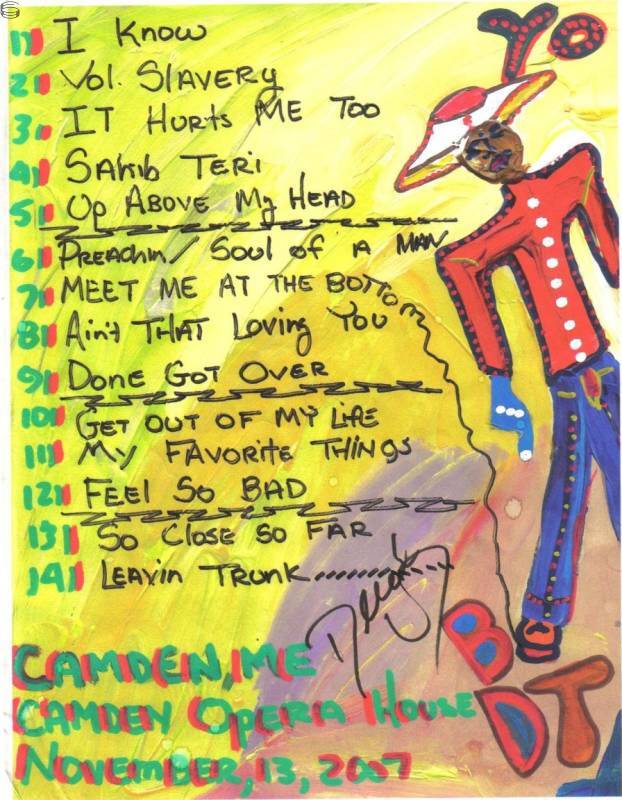 YO
1) I Know
2) Vol. Slavery
3) IT Hurts ME Too
4) Sahib Teri
5) Up Above My Head
6) Preachin/ Soul of A Man
7) MEET ME AT THE BOTTOM
8) Ain't THAT Loving You
9) Done Got Over
10) Get out of My Life
11) My FAVORITE THINGS
12) Feel So BAD
13) So Close so FAR
14) Leavin Trunk
Derek
CAMDEN, ME
CAMDEN Opera House
November, 13, 2007
B
DT